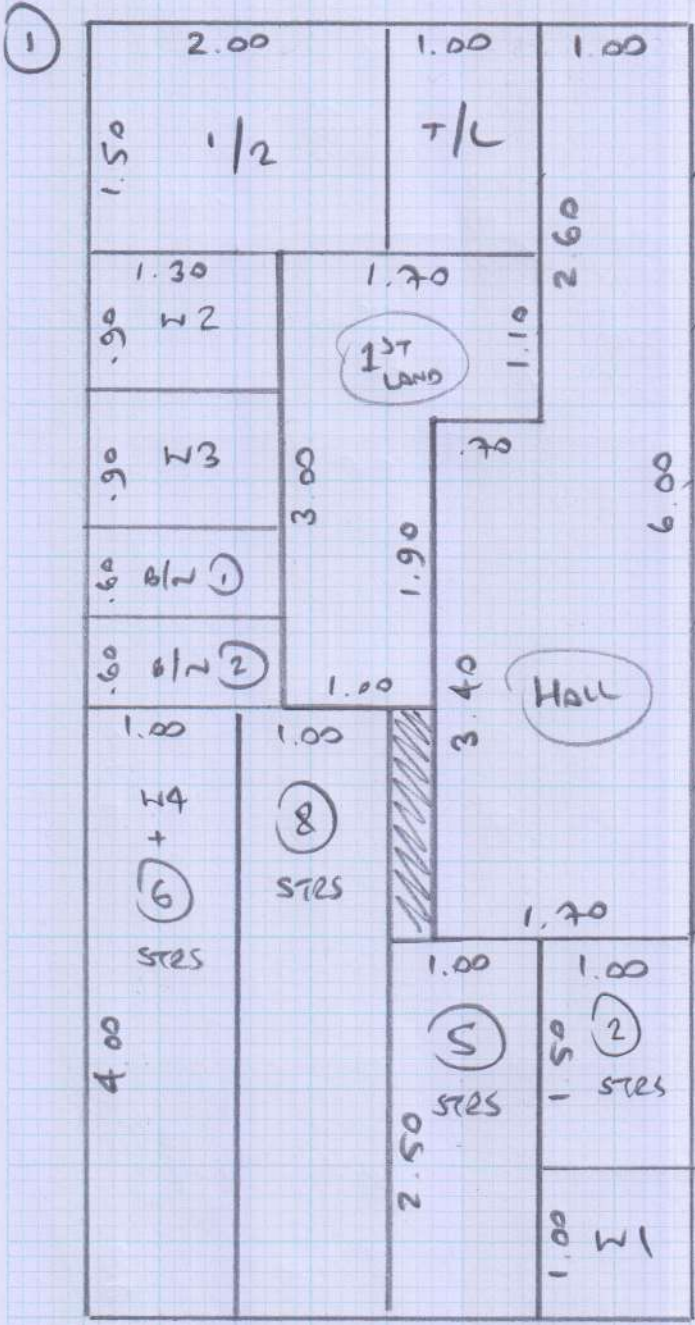 1
2.00
1.00
1.00
1.50
1/2
T/L
2.60
1.30
1.70
.90
W2
1ST
LAND
1.10
.90
W3
3.00
.70
6.00
.60
B/N 1
1.90
.60
B/N 2
1.00
3.40
HALL
1.00
1.00
W4
+
6
STRS
8
STRS
1.70
4.00
1.00
1.00
5
STRS
1.50
2
STRS
2.50
1.00
W1